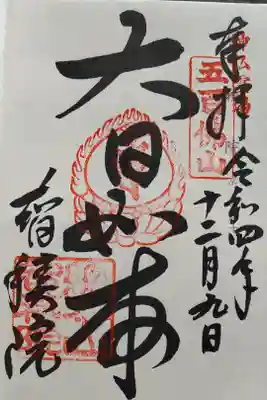 奉拝
五百佛山
令和四年
十二月九日
大日如来
智積院